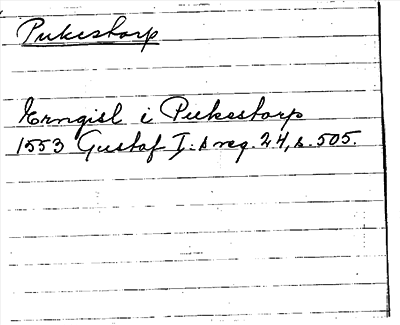 Pukestorp
Erngisl i Pukestorp
1553 Gustaf I:s reg. 24, s. 505.